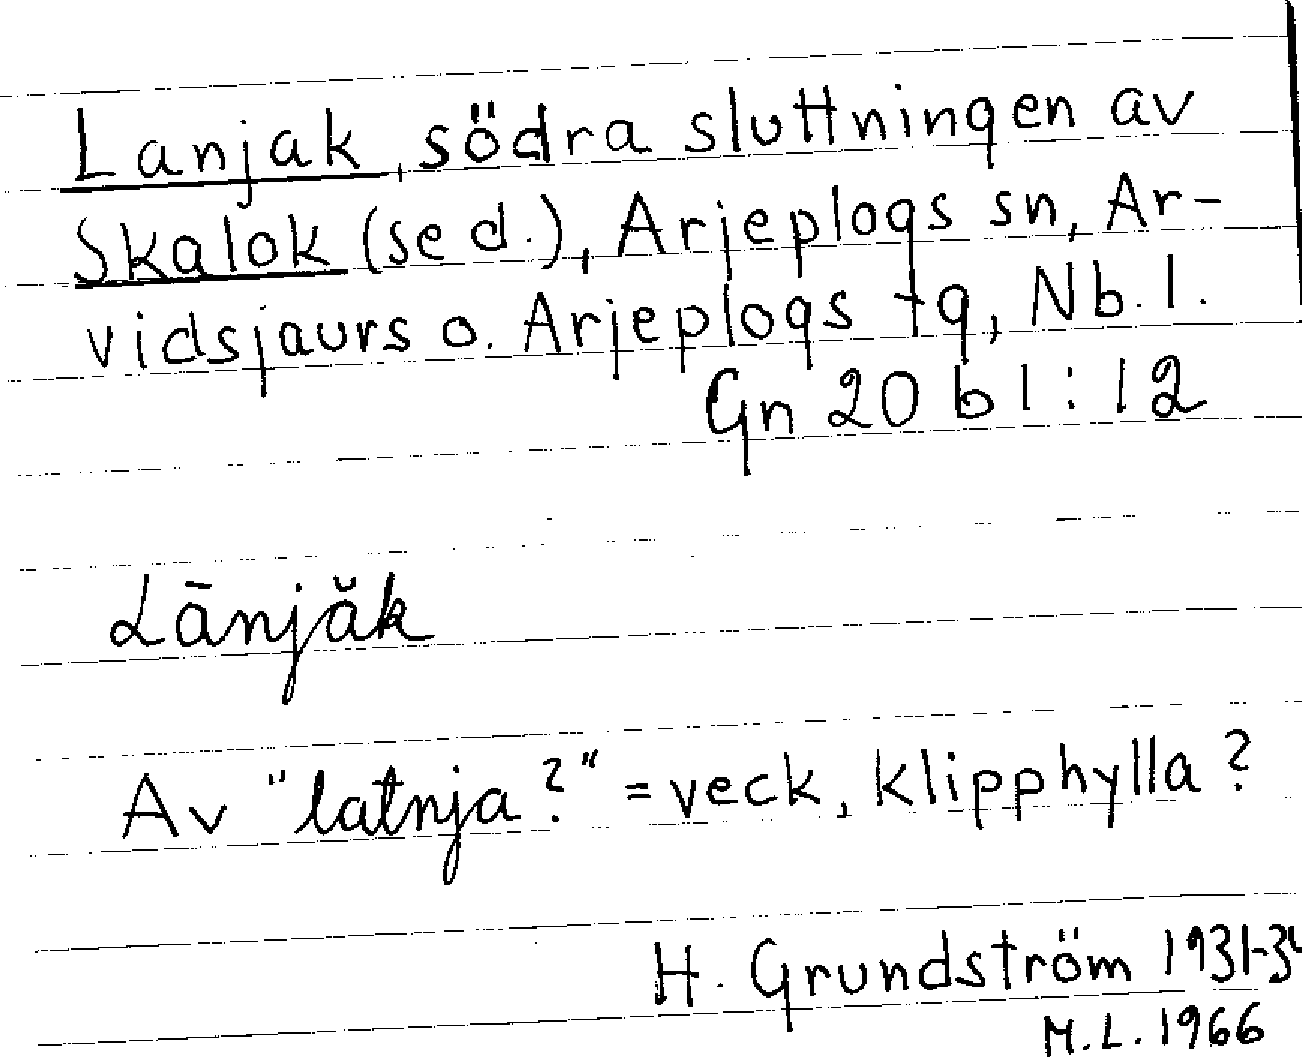 Lanjak, södra sluttningen av
Skalok (se d.), Arjeplogs sn, Ar-
vidsjaurs o. Arjeplogs tg, Nb. l.
Gn 20 b 1 : 12
Lānjăk
Av "latnja?" = veck, klipphylla?
H. Grundström 1931-34
M.L. 1966